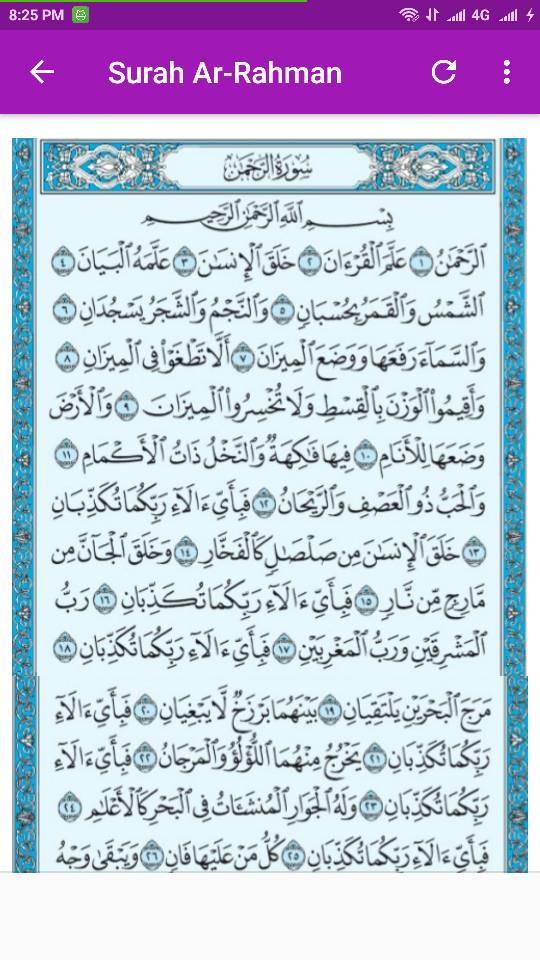 8:25 PM 4G
Surah Ar-Rahman
سُورَةُ الرَّحْمَٰن
بِسْمِ اللَّهِ الرَّحْمَٰنِ الرَّحِيمِ
الرَّحْمَٰنُ ١ عَلَّمَ الْقُرْءَانَ ٢ خَلَقَ الْإِنسَٰنَ ٣ عَلَّمَهُ الْبَيَانَ ٤
الشَّمْسُ وَالْقَمَرُ بِحُسْبَانٍ ٥ وَالنَّجْمُ وَالشَّجَرُ يَسْجُدَانِ ٦
وَالسَّمَاءَ رَفَعَهَا وَوَضَعَ الْمِيزَانَ ٧ أَلَّا تَطْغَوْا فِي الْمِيزَانِ ٨
وَأَقِيمُوا الْوَزْنَ بِالْقِسْطِ وَلَا تُخْسِرُوا الْمِيزَانَ ٩ وَالْأَرْضَ
وَضَعَهَا لِلْأَنَامِ ١٠ فِيهَا فَٰكِهَةٌ وَالنَّخْلُ ذَاتُ الْأَكْمَامِ ١١
وَالْحَبُّ ذُو الْعَصْفِ وَالرَّيْحَانُ ١٢ فَبِأَيِّ ءَالَاءِ رَبِّكُمَا تُكَذِّبَانِ
١٣ خَلَقَ الْإِنسَٰنَ مِن صَلْصَٰلٍ كَالْفَخَّارِ ١٤ وَخَلَقَ الْجَانَّ مِن
مَّارِجٍ مِّن نَّارٍ ١٥ فَبِأَيِّ ءَالَاءِ رَبِّكُمَا تُكَذِّبَانِ ١٦ رَبُّ
الْمَشْرِقَيْنِ وَرَبُّ الْمَغْرِبَيْنِ ١٧ فَبِأَيِّ ءَالَاءِ رَبِّكُمَا تُكَذِّبَانِ ١٨
مَرَجَ الْبَحْرَيْنِ يَلْتَقِيَانِ ١٩ بَيْنَهُمَا بَرْزَخٌ لَّا يَبْغِيَانِ ٢٠ فَبِأَيِّ ءَالَاءِ
رَبِّكُمَا تُكَذِّبَانِ ٢١ يَخْرُجُ مِنْهُمَا اللُّؤْلُؤُ وَالْمَرْجَانُ ٢٢ فَبِأَيِّ ءَالَاءِ
رَبِّكُمَا تُكَذِّبَانِ ٢٣ وَلَهُ الْجَوَارِ الْمُنشَـَٔاتُ فِي الْبَحْرِ كَالْأَعْلَٰمِ ٢٤
فَبِأَيِّ ءَالَاءِ رَبِّكُمَا تُكَذِّبَانِ ٢٥ كُلُّ مَنْ عَلَيْهَا فَانٍ ٢٦ وَيَبْقَىٰ وَجْهُ